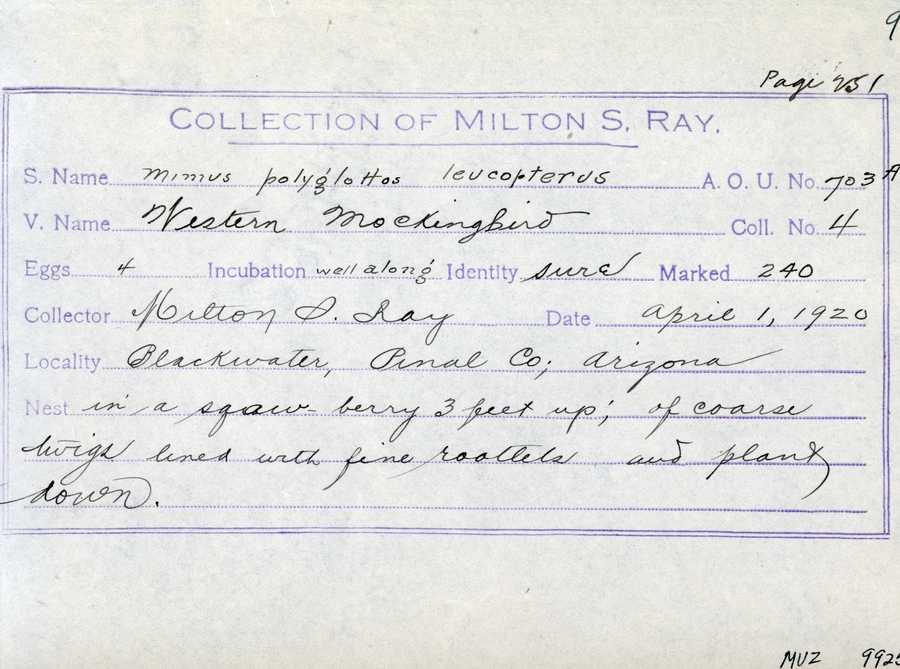 9
Page 251
COLLECTION OF MILTON S. RAY.
S. Name mimus polyglottos leucopterus A. O. U. No. 703 A
V. Name Western Mockingbird Coll. No. 4
Eggs 4 Incubation well along Identity sure Marked 240
Collector Milton S. Ray Date April 1, 1920
Locality Blackwater, Pinal Co; Arizona
Nest in a sqaw-berry 3 feet up; of coarse
twigs lined with fine rootlets and plant
down.
MVZ 992